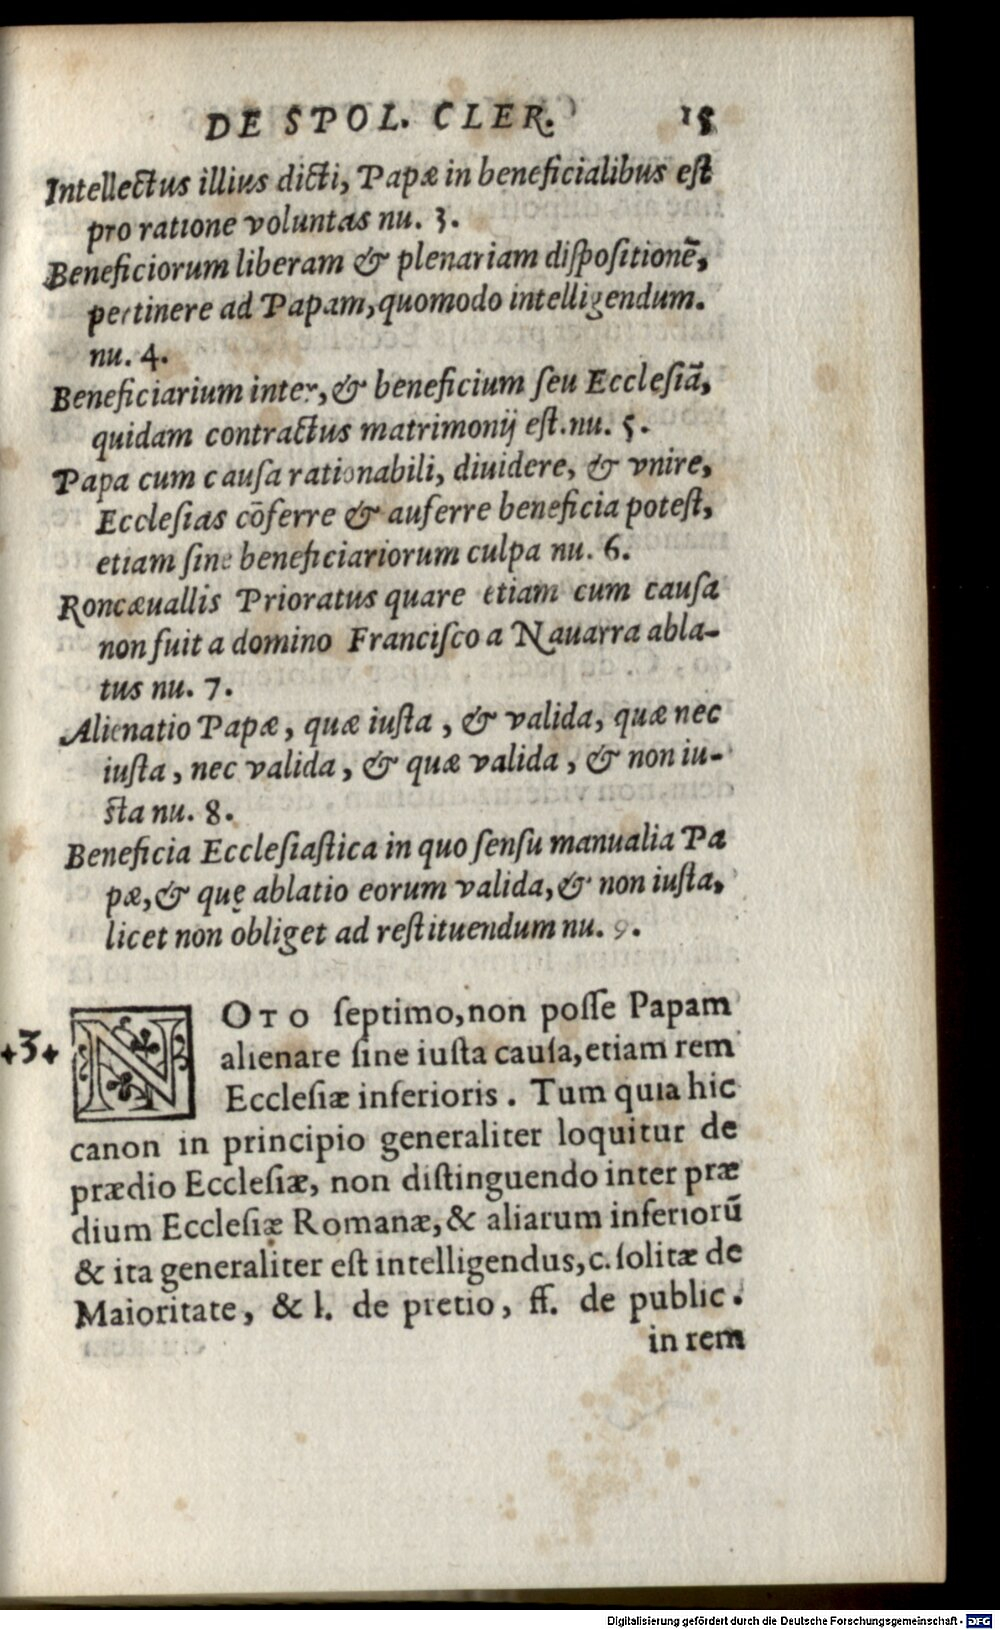 DE SPOL. CLER. 15
Intellectus illius dicti, Papæ in beneficialibus eſt
pro ratione voluntas nu. 3.
Beneficiorum liberam & plenariam diſpoſitionē,
pertinere ad Papam, quomodo intelligendum.
nu. 4.
Beneficiarium inter, & beneficium ſeu Eccleſiā,
quidam contractus matrimonij eſt. nu. 5.
Papa cum cauſa rationabili, diuidere, & vnire,
Eccleſias cōferre & auferre beneficia poteſt,
etiam ſine beneficiariorum culpa nu. 6.
Roncæuallis Prioratus quare etiam cum cauſa
non fuit a domino Franciſco a Nauarra abla-
tus nu. 7.
Alienatio Papæ, quæ iuſta, & valida, quæ nec
iuſta, nec valida, & quæ valida, & non iu-
ſta nu. 8.
Beneficia Eccleſiaſtica in quo ſenſu manualia Pa
pæ, & quę ablatio eorum valida, & non iuſta,
licet non obliget ad reſtituendum nu. 9.
NOTO ſeptimo, non poſſe Papam
+3+ alienare ſine iuſta cauſa, etiam rem
Eccleſiæ inferioris. Tum quia hic
canon in principio generaliter loquitur de
prædio Eccleſiæ, non diſtinguendo inter præ
dium Eccleſiæ Romanæ, & aliarum inferiorū
& ita generaliter eſt intelligendus, c. ſolitæ de
Maioritate, & l. de pretio, ff. de public.
in rem
Digitalisierung gefördert durch die Deutsche Forschungsgemeinschaft - DFG